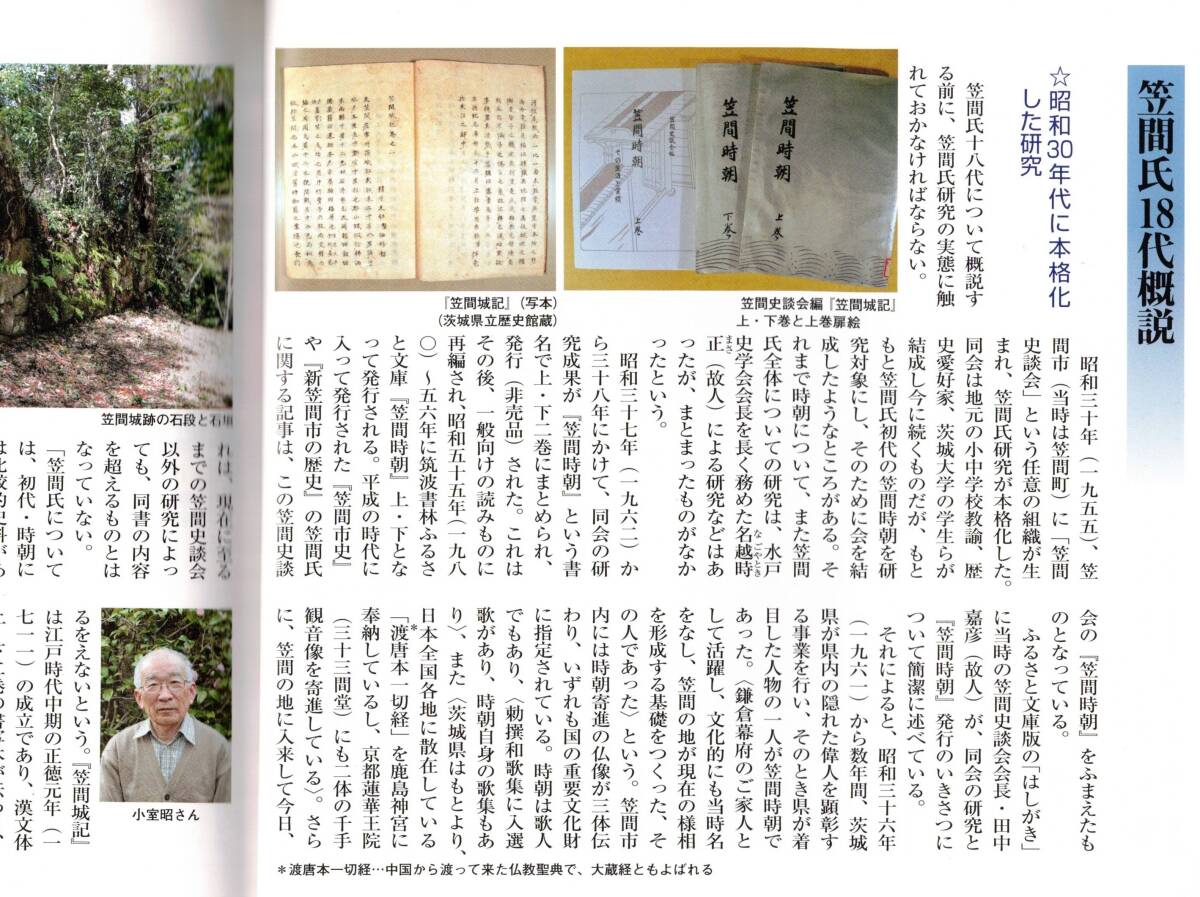 笠間氏18代概説
☆昭和30年代に本格化
した研究
笠間氏十八代について概説す
る前に、笠間氏研究の実態に触
れておかなければならない。
笠間時朝
上巻
笠間時朝
下巻
笠間時朝
その生涯と業績
上巻
笠間史談会編『笠間城記』
上・下巻と上巻扉絵
『笠間城記』(写本)
(茨城県立歴史館蔵)
昭和三十年(一九五五)、笠
間市(当時は笠間町)に「笠間
史談会」という任意の組織が生
まれ、笠間氏研究が本格化した。
同会は地元の小中学校教諭、歴
史愛好家、茨城大学の学生らが
結成し今に続くものだが、もと
もと笠間氏初代の笠間時朝を研
究対象にし、そのために会を結
成したようなところがある。そ
れまで時朝について、また笠間
氏全体についての研究は、水戸
史学会会長を長く務めた名越時
なごやとき
正(故人)による研究などはあ
まさ
ったが、まとまったものがなか
ったという。
昭和三十七年(一九六二)か
ら三十八年にかけて、同会の研
究成果が『笠間時朝』という書
名で上・下二巻にまとめられ、
発行(非売品)された。これは
その後、一般向けの読みものに
再編され、昭和五十五年(一九八
〇)~五六年に筑波書林ふるさ
と文庫『笠間時朝』上・下とな
って発行される。平成の時代に
入って発行された『笠間市史』
や『新笠間市の歴史』の笠間氏
に関する記事は、この笠間史談
会の『笠間時朝』をふまえたも
のとなっている。
ふるさと文庫版の「はしがき」
に当時の笠間史談会会長・田中
嘉彦(故人)が、同会の研究と
『笠間時朝』発行のいきさつに
ついて簡潔に述べている。
それによると、昭和三十六年
(一九六一)から数年間、茨城
県が県内の隠れた偉人を顕彰す
る事業を行い、そのとき県が着
目した人物の一人が笠間時朝で
あった。〈鎌倉幕府のご家人と
して活躍し、文化的にも当時名
をなし、笠間の地が現在の様相
を形成する基礎をつくった、そ
の人であった〉という。笠間市
内には時朝寄進の仏像が三体伝
わり、いずれも国の重要文化財
に指定されている。時朝は歌人
でもあり、〈勅撰和歌集に入選
歌があり、時朝自身の歌集もあ
り〉、また〈茨城県はもとより、
日本全国各地に散在している
「渡唐本一切経」を鹿島神宮に
*
奉納しているし、京都蓮華王院
(三十三間堂)にも二体の千手
観音像を寄進している〉。さら
に、笠間の地に入来して今日、
*渡唐本一切経…中国から渡って来た仏教聖典で、大蔵経ともよばれる
笠間城跡の石段と石垣
れは、現在に至る
までの笠間史談会
以外の研究によっ
ても、同書の内容
を超えるものとは
なっていない。
「笠間氏について
は、初代・時朝に
は比較的史料があ
小室昭さん
るをえないという。『笠間城記』
は江戸時代中期の正徳元年(一
七一一)の成立であり、漢文体